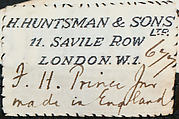 H. HUNTSMAN & SONS LTD.
11. SAVILE ROW
LONDON. W.1.
F. H. Prince Jnr
made in England